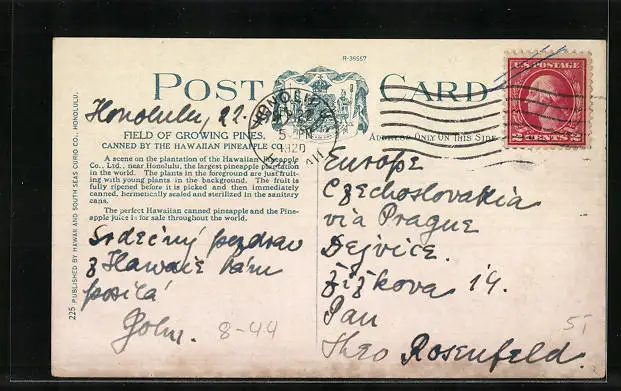 R-36557
POST CARD
Honolulu, 22.
HONOLULU
5 PM
1920
U.S. POSTAGE
2 CENTS 2
FIELD OF GROWING PINES.
CANNED BY THE HAWAIIAN PINEAPPLE CO.
ADDRESS ONLY ON THIS SIDE
A scene on the plantation of the Hawaiian Pineapple
Co., Ltd., near Honolulu, the largest pineapple plantation
in the world. The plants in the foreground are just fruit-
ing with young plants in the background. The fruit is
fully ripened before it is picked and then immediately
canned, hermetically sealed and sterilized in the sanitary
cans.
The perfect Hawaiian canned pineapple and the Pine-
apple juice is for sale throughout the world.
Srdečný pozdrav
z Hawaie Vám
posílá
John.
8-44
Europe
Czechoslovakia
via Prague
Dejvice.
Žižkova 14.
Pan
Theo Rosenfeld.
51
225 PUBLISHED BY HAWAII AND SOUTH SEAS CURIO CO., HONOLULU.